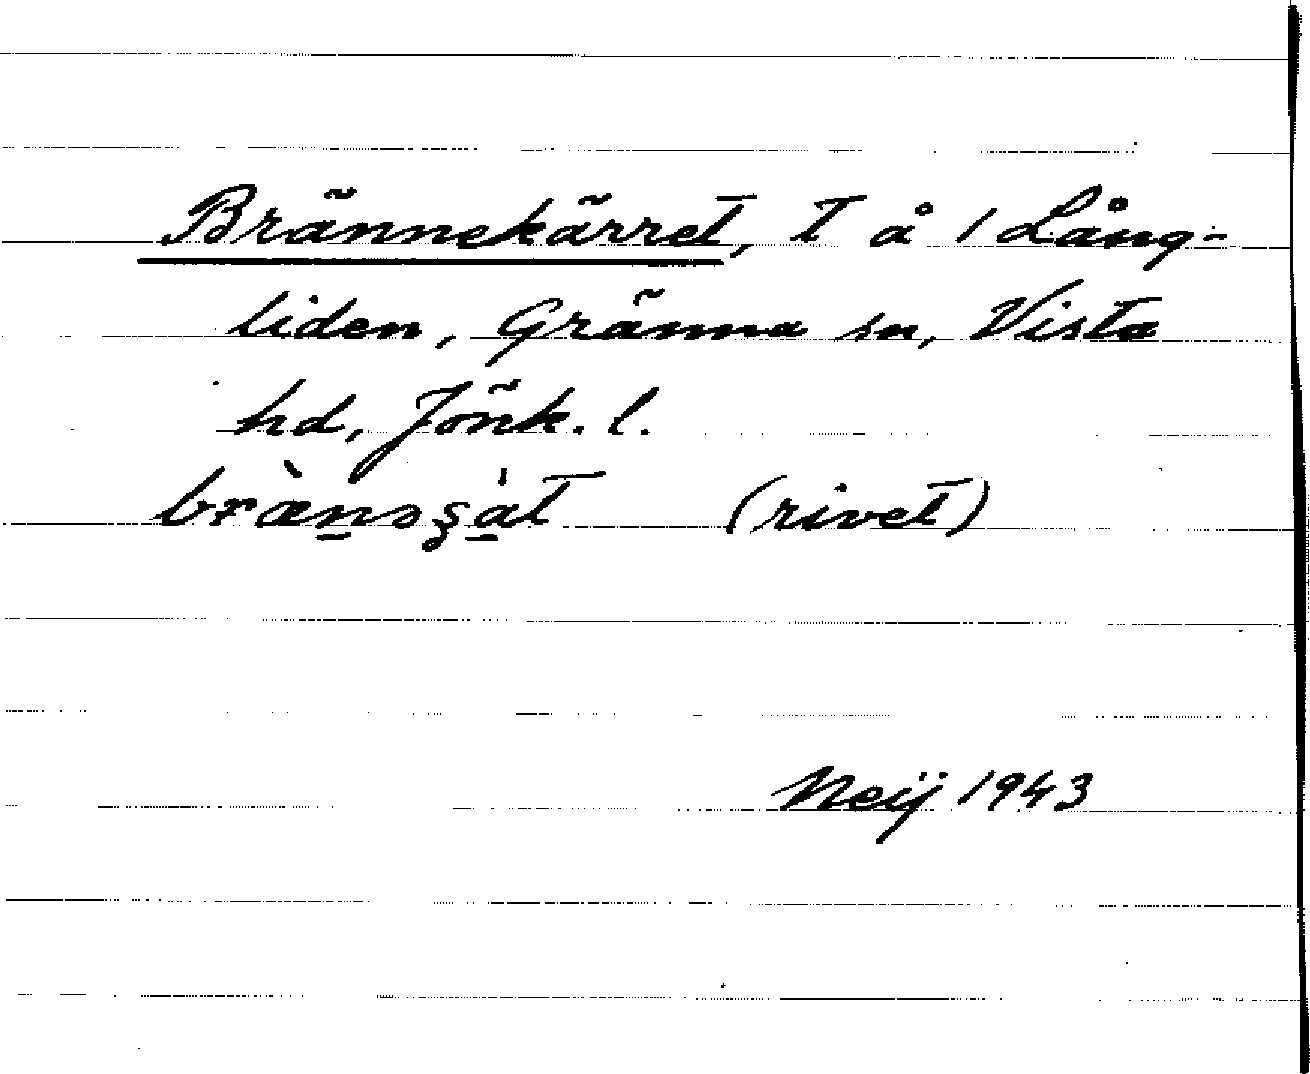 Brännekärret, T å 1 Lång-
liden, Gränna sn, Vista
hd, Jönk. l.
(rivet)
Neij 1943